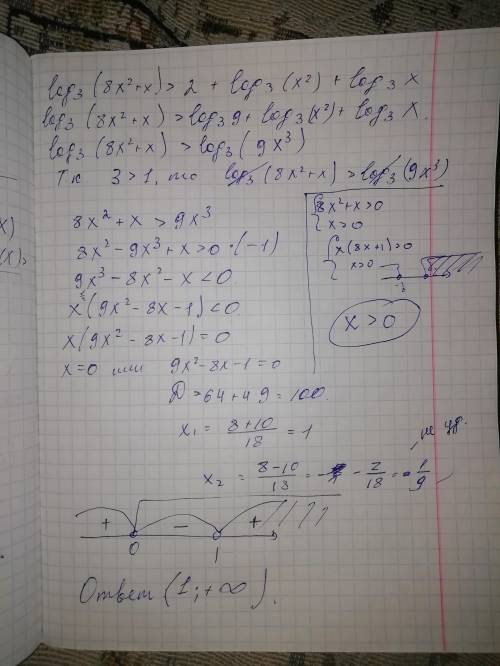 log₃(8x²+x) > 2 + log₃(x²) + log₃ x
log₃(8x²+x) > log₃9 + log₃(x²) + log₃ x.
log₃(8x²+x) > log₃(9x³)
Т.к 3>1, то log₃(8x²+x) > log₃(9x³)
8x² + x > 9x³
8x² - 9x³ + x > 0 ·(-1)
9x³ - 8x² - x < 0
x(9x² - 8x - 1) < 0
x(9x² - 8x - 1) = 0
x=0 или 9x² - 8x - 1 = 0
D = 64 + 4·9 = 100.
x₁ = (8+10)/18 = 1
x₂ = (8-10)/18 = - 2/18 = - 1/9
{8x²+x>0
{x>0
{x(8x+1)>0
{x>0
-1/8
x > 0
+ - +
0 1
Ответ (1; +∞).
X)
(x)>